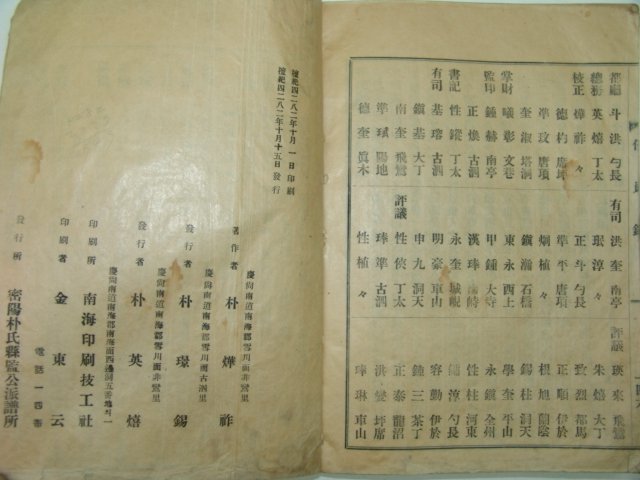 都廳 斗洪 勺長
總務 英熺 丁太
校正 燁祚 々
德杓 唐坪
準玟 唐項
奎淑 塔洞
掌財 曦彰 文巷
監印 鍾赫 南亭
正煥 古泗
書記 性鏦 丁太
有司 基瑢 古泗
鎭基 大丁
南奎 飛鸞
準斌 陽地
德奎 眞木
有司 洪奎 南亭
珉淳 々
正斗 勺長
準平 唐項
炯植 々
鎭瀚 石橋
東永 西上
甲鍾 大寺
漢琫
永奎 城峴
明豪 車山
申九 洞天
評議 性俠 丁太
琫準 古泗
性植 々
評議 瑛來 飛鸞
朱熺 大丁
致烈 都馬
正順 伊於
根旭 蘭陰
錫柱 洞天
學奎 平山
永鎭 全州
性柱 河東
淳 勺長
容勳 伊於
鍾三 茶丁
正泰 龍沼
洪燮 坪席
琫琳 車山
檀紀四二八二年十月一日印刷
檀紀四二八二年十月十五日發行
慶尙南道南海郡雪川面非鸞里
著作者 朴燁祚
慶尙南道南海郡雪川面古泗里
發行者 朴璟錫
慶尙南道南海郡雪川面非鸞里
發行者 朴英熺
慶尙南道南海郡南海面西邊洞五番地의一
印刷所 南海印刷技工社
印刷者 金東云
電話 一四番
發行所 密陽朴氏縣監公派譜所